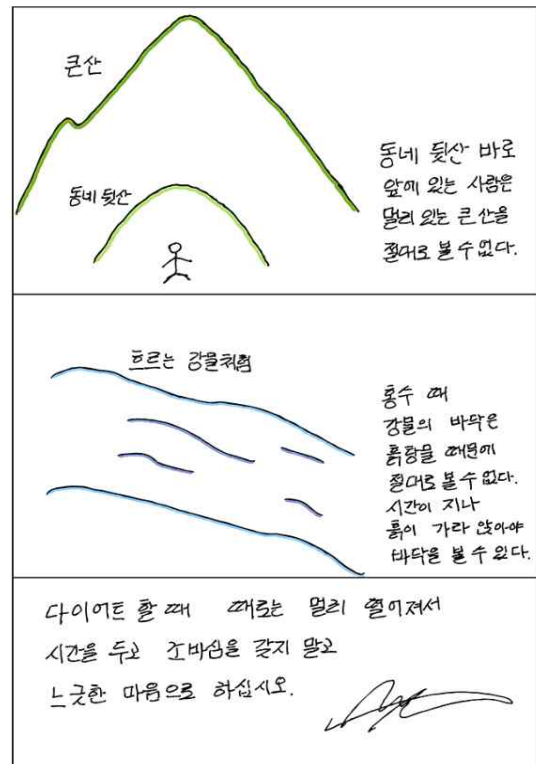 큰산
동네 뒷산
동네 뒷산 바로
앞에 있는 사람은
멀리 있는 큰 산을
절대로 볼 수 없다.
흐르는 강물처럼
홍수 때
강물의 바닥은
흙탕물 때문에
절대로 볼 수 없다.
시간이 지나
흙이 가라 앉아야
바닥을 볼 수 있다.
다이어트 할 때 때로는 멀리 떨어져서
시간을 두고 조바심을 갖지 말고
느긋한 마음으로 하십시오.